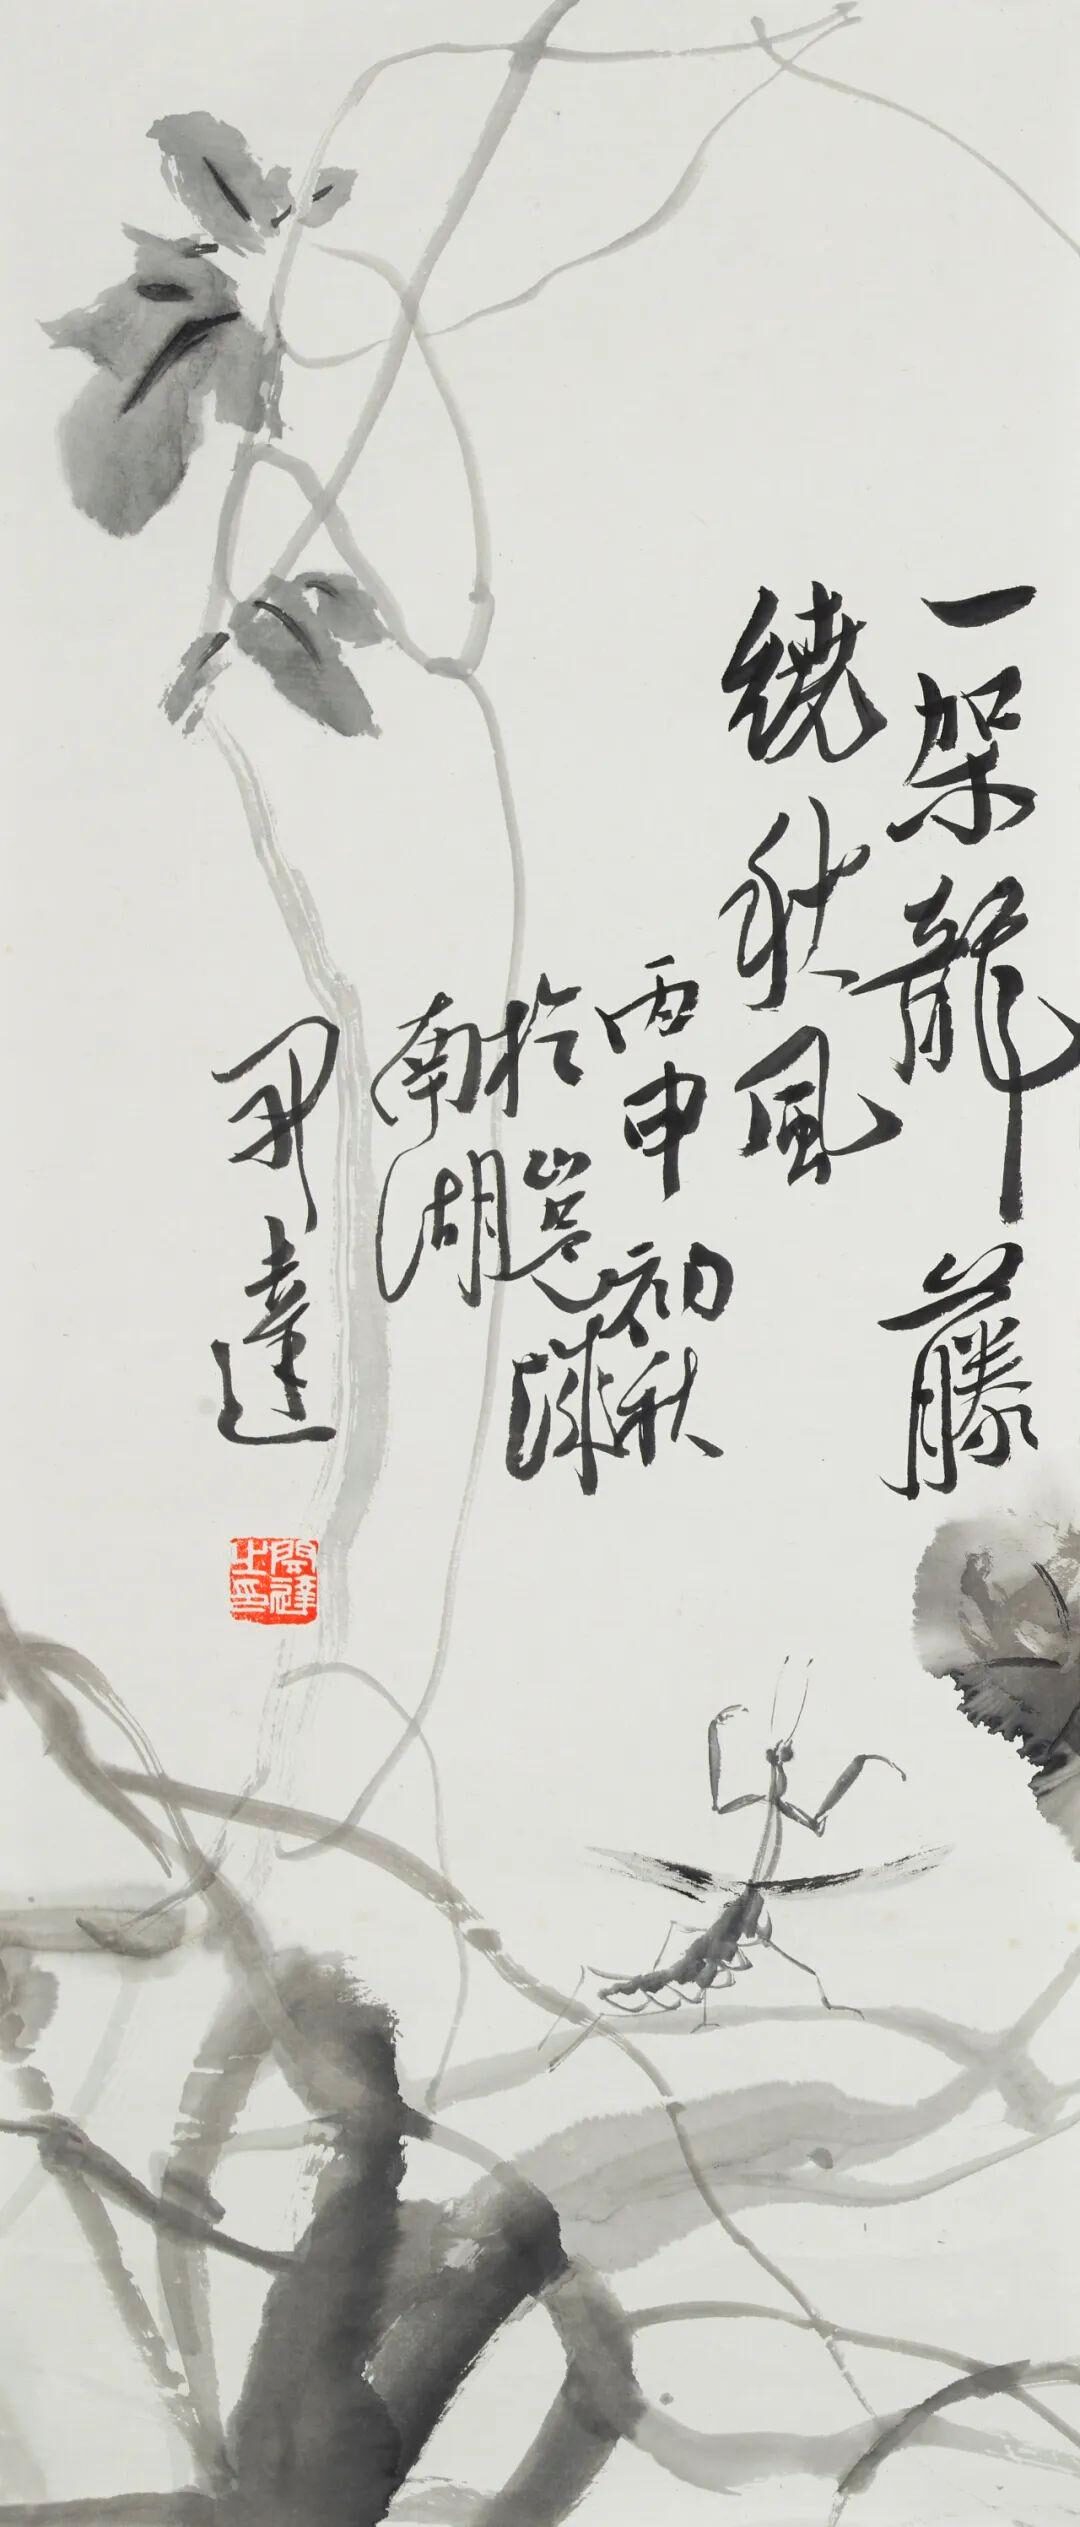 一架龍藤
繞秋風
丙申初秋
於邕城
南湖
閆達
閆達之印